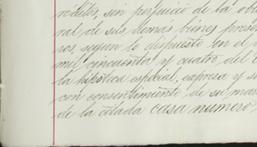 réditos, sin perjuicio de la obli
ral de sus demás bienes presen
ros, segun lo dispuesto en el a
mil cincuenta y cuatro, del C
la hipoteca especial, expresa y se
con consentimiento de su mar
de la citada casa numero